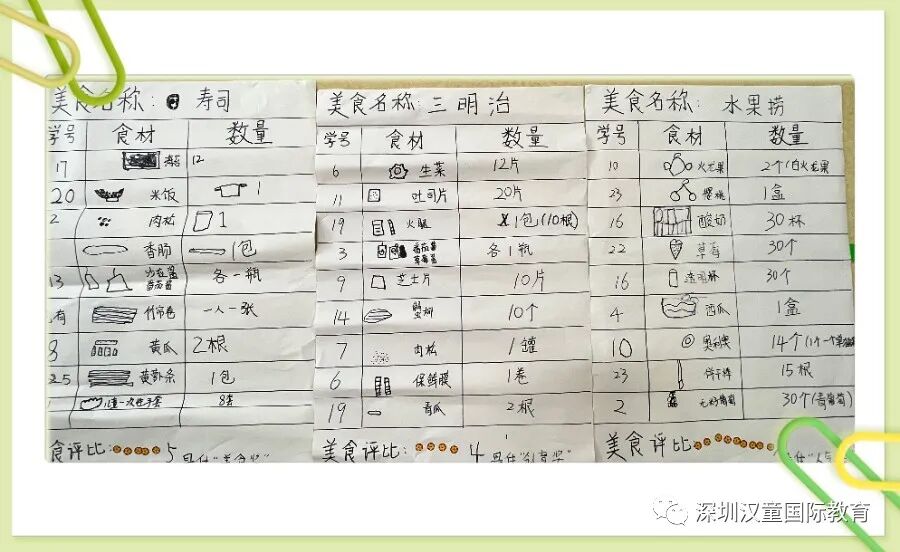 美食名称: 寿司
学号 食材 数量
17 海苔 12
20 米饭 1
2 肉松 1
香肠 1包
13 沙拉酱 番茄酱 各一瓶
有 竹帘卷 一人一张
3 黄瓜 2根
25 黄萝卜条 1包
一次性手套 8套
食评比: 5
最佳“美食奖”
美食名称: 三明治
学号 食材 数量
6 生菜 12片
11 吐司片 20片
19 火腿 1包(10根)
3 番茄酱 草莓酱 各1瓶
9 芝士片 10片
14 蟹柳 10个
7 肉松 1罐
6 保鲜膜 1卷
19 青瓜 2根
美食评比: 4
最佳“创意奖”
美食名称: 水果捞
学号 食材 数量
10 火龙果 2个(白火龙果
23 樱桃 1盒
16 酸奶 30杯
22 草莓 30个
16 透明杯 30个
4 西瓜 1盒
10 奥利奥 14个(1个一个单独
23 饼干棒 15根
2 无籽葡萄 30个(青葡萄)
美食评比:
最佳“人气
深圳汉童国际教育